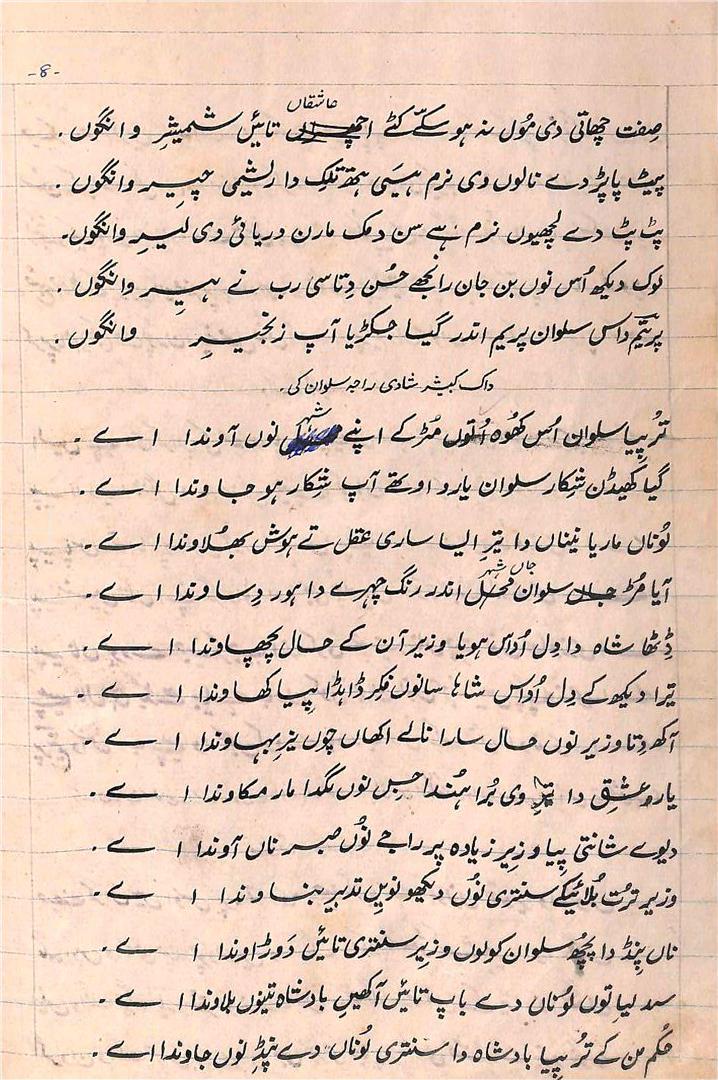 -8-
عاشقاں
صِفت چھاتی دی مُول نہ ہو سکّے کٹے تائیں شمیشِر وانگوں ۔
پیٹ پاپڑ دے نالوں وی نرم ہیَسی ہتھ تلک دا ریشمی چِیر وانگوں ۔
پٹ پٹ دے لچھیوں نرم ہے سن دمک مارن دریائی دی لیر وانگوں۔
لوک دیکھ اُس نوں بن جان رانجھے حُسن دِتا سی رب نے ہیر وانگوں ۔
پریتم داس سلوان پریم اندر گیا جکڑیا آپ زنجیر وانگوں ۔
ڈاک کبیشر شادی راجہ سلوان کی ۔
شہر
تُر پیا سلوان اُس کھُوہ اُتوں مُڑ کے اپنے نوں آوندا اے ۔
گیا کھیڈن شکار سلوان یارو اوتھے آپ شکار ہو جاوندا اے ۔
لوُناں ماریا نیناں دا تیر ایسا ساری عقل تے ہوش بھُلاوندا اے ۔
جاں شہر
آیا مُڑ سلوان اندر رنگ چہرے دا ہور دِساوندا اے ۔
ڈِٹھا شاہ دا دِل اُداس ہویا وزیر آن کے حال پچھاوندا اے ۔
تیرا دیکھ کے دِل اُداس شاہا سانوں فِکر ڈاہڈا پیا کھاوندا اے ۔
آکھ دِتا وزیر نوں حال سارا نالے اکھاں چوں نیر بہاوندا اے ۔
یارو عشق دا تیر وی بُرا ہُندا جِس نوں لگدا مار مکاوندا اے ۔
دیوے شانتی پیا وزیر زیادہ پر راجے نوُں صبر ناں آوندا اے ۔
وزیر تُرت بُلائیکے سنتری نوُں دیکھو نویں تدبیر بناوندا اے ۔
ناں پِنڈ دا پچھ سلوان کولوں وزیر سنتری تائیں دَوڑاوندا اے ۔
سد لیا توں لوُناں دے باپ تائیں آکھیں بادشاہ تینوں بلاوندا اے ۔
حُکم من کے تُر پیا بادشاہ دا سنتری لوُناں دے پِنڈ نوں جاوندا اے ۔